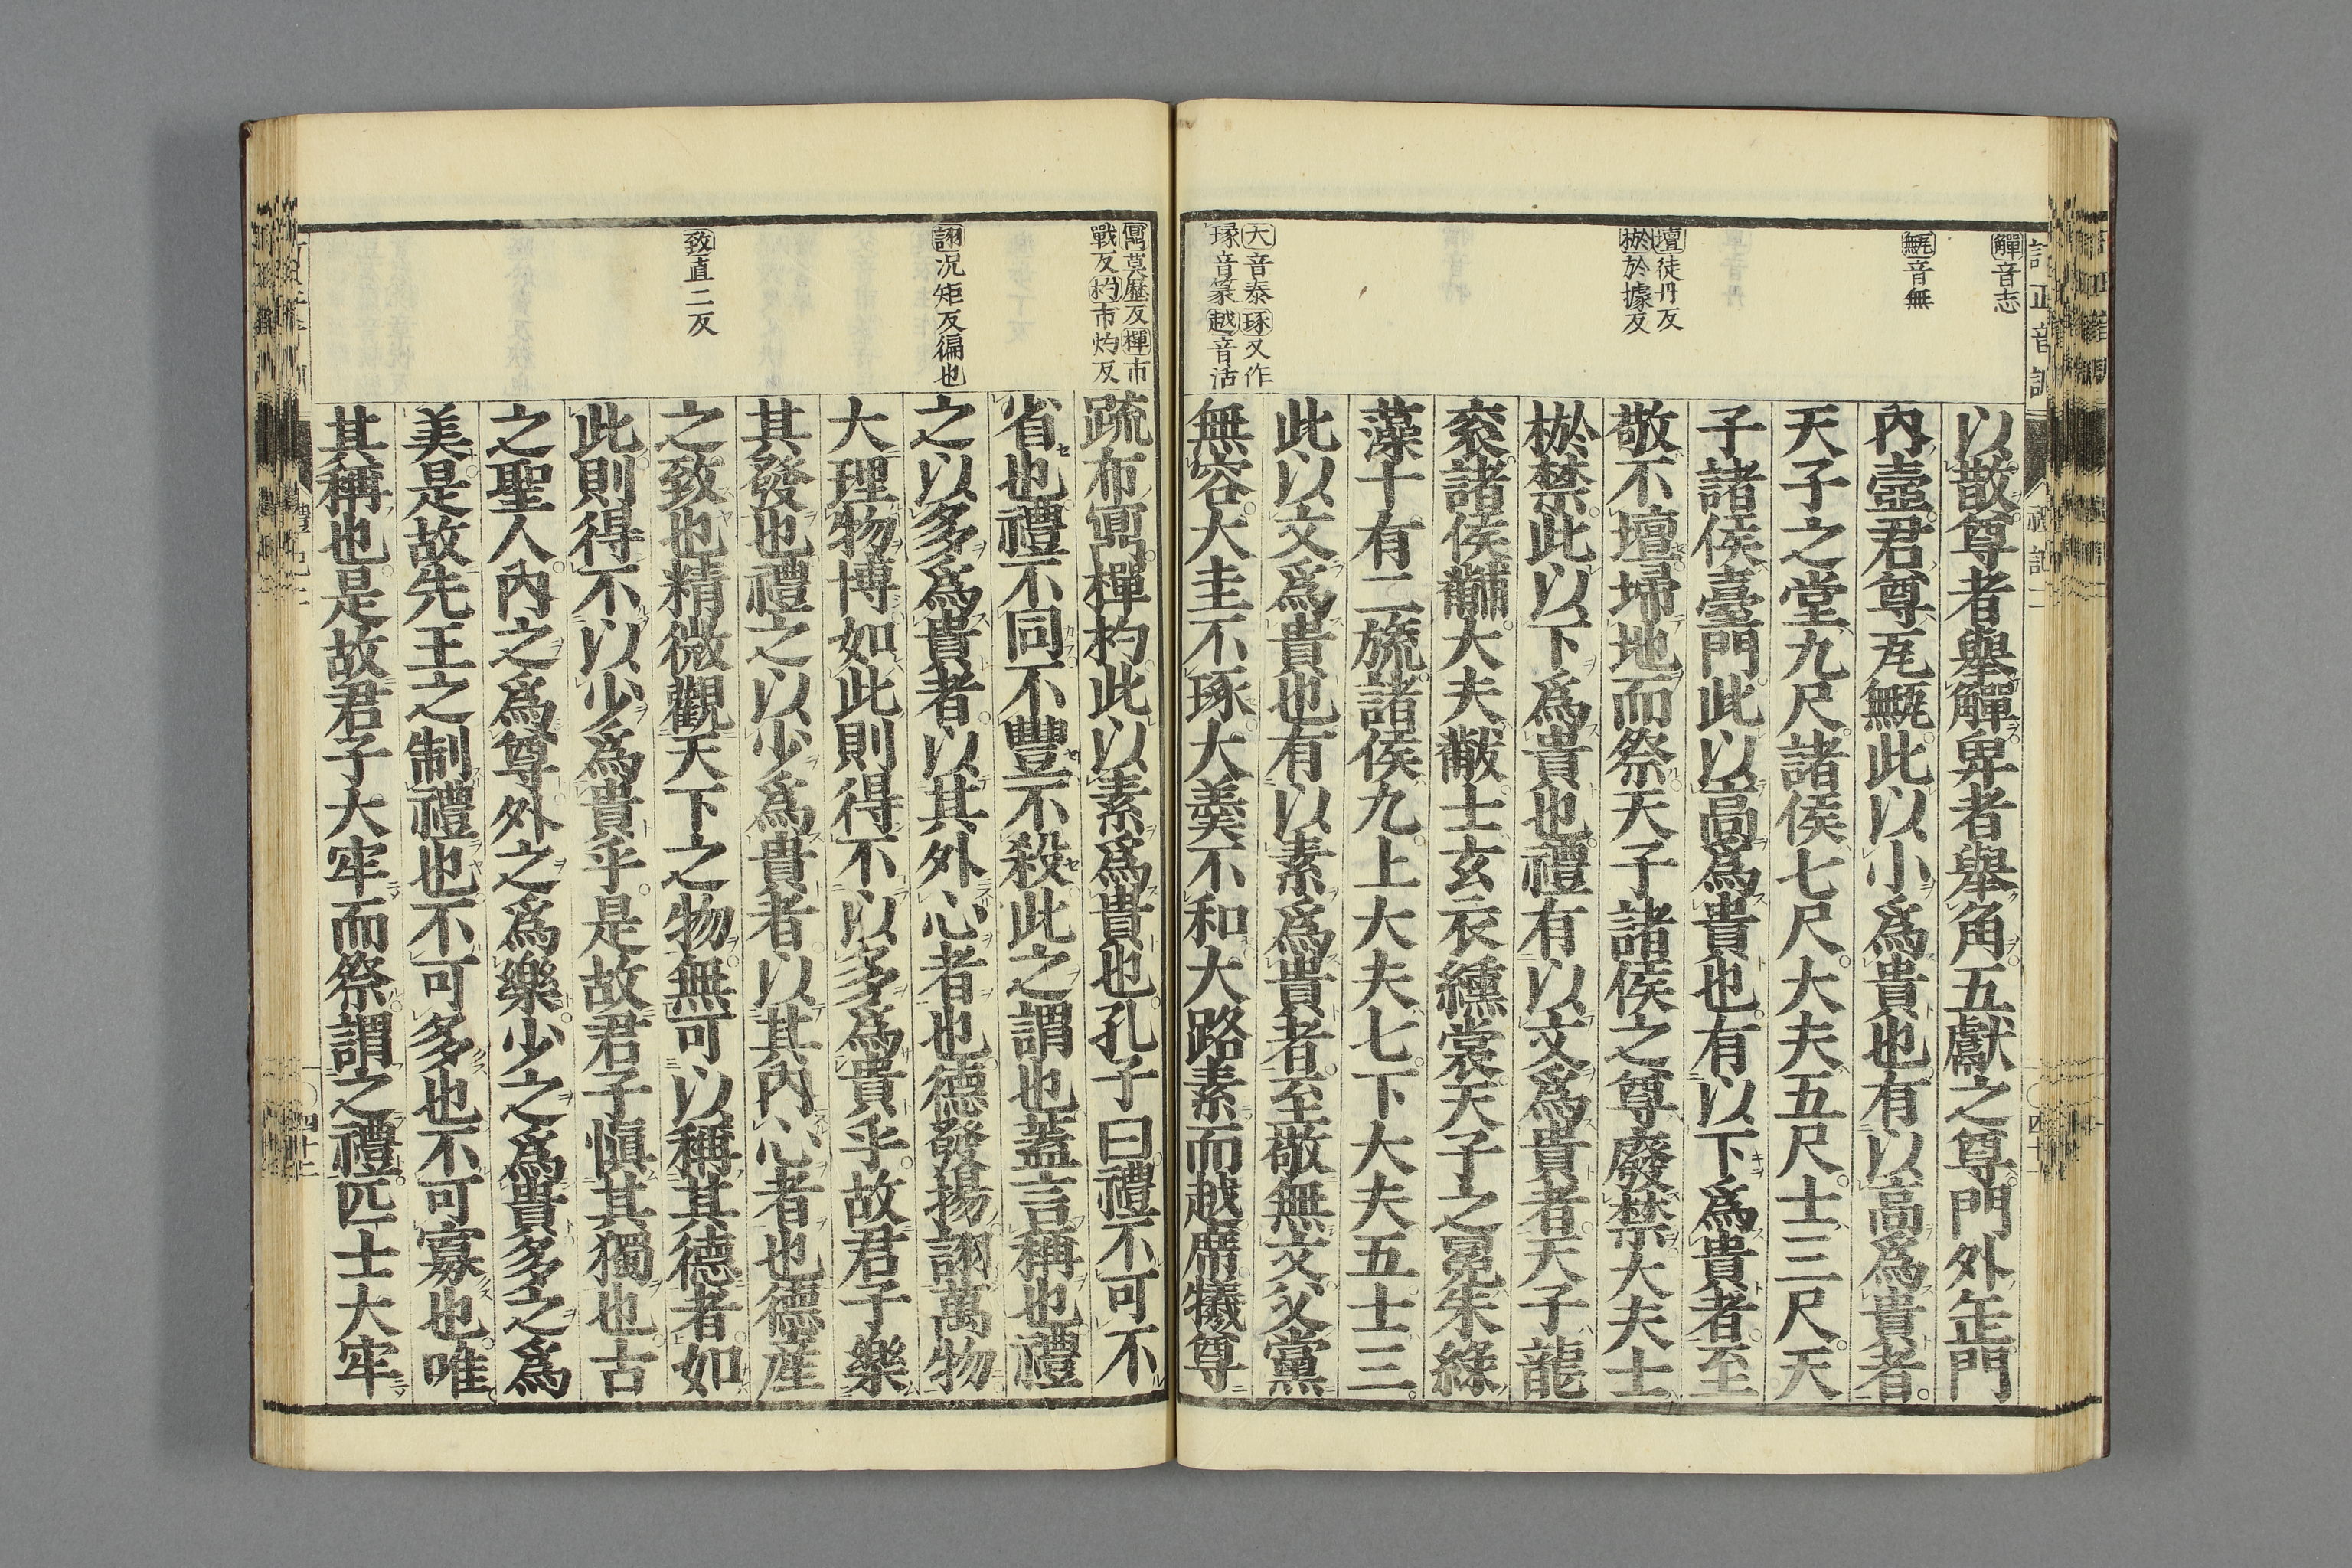 觶音志
甒音無
壇徒丹反
棜於據反
大音泰琢又作
瑑音篆越音活
以散尊者舉觶卑者舉角五獻之尊門外缶門
內壺君尊瓦甒此以小爲貴也有以高爲貴者
天子之堂九尺諸侯七尺大夫五尺士三尺天
子諸侯臺門此以高爲貴也有以下爲貴者至
敬不壇埽地而祭天子諸侯之尊廢禁大夫士
棜禁此以下爲貴也禮有以文爲貴者天子龍
袞諸侯黼大夫黻士玄衣纁裳天子之冕朱綠
藻十有二旒諸侯九上大夫七下大夫五士三
此以文爲貴也有以素爲貴者至敬無文父黨
無容大圭不琢大羹不和大路素而越席犧尊
鼏莫歷反樿市
戰反杓市灼反
詡况矩反徧也
致直二反
疏布鼏樿杓此以素爲貴也孔子曰禮不可不
省也禮不同不豐不殺此之謂也蓋言稱也禮
之以多爲貴者以其外心者也德發揚詡萬物
大理物博如此則得不以多爲貴乎故君子樂
其發也禮之以少爲貴者以其內心者也德産
之致也精微觀天下之物無可以稱其德者如
此則得不以少爲貴乎是故君子愼其獨也古
之聖人內之爲尊外之爲樂少之爲貴多之爲
美是故先王之制禮也不可多也不可寡也唯
其稱也是故君子大牢而祭謂之禮匹士大牢